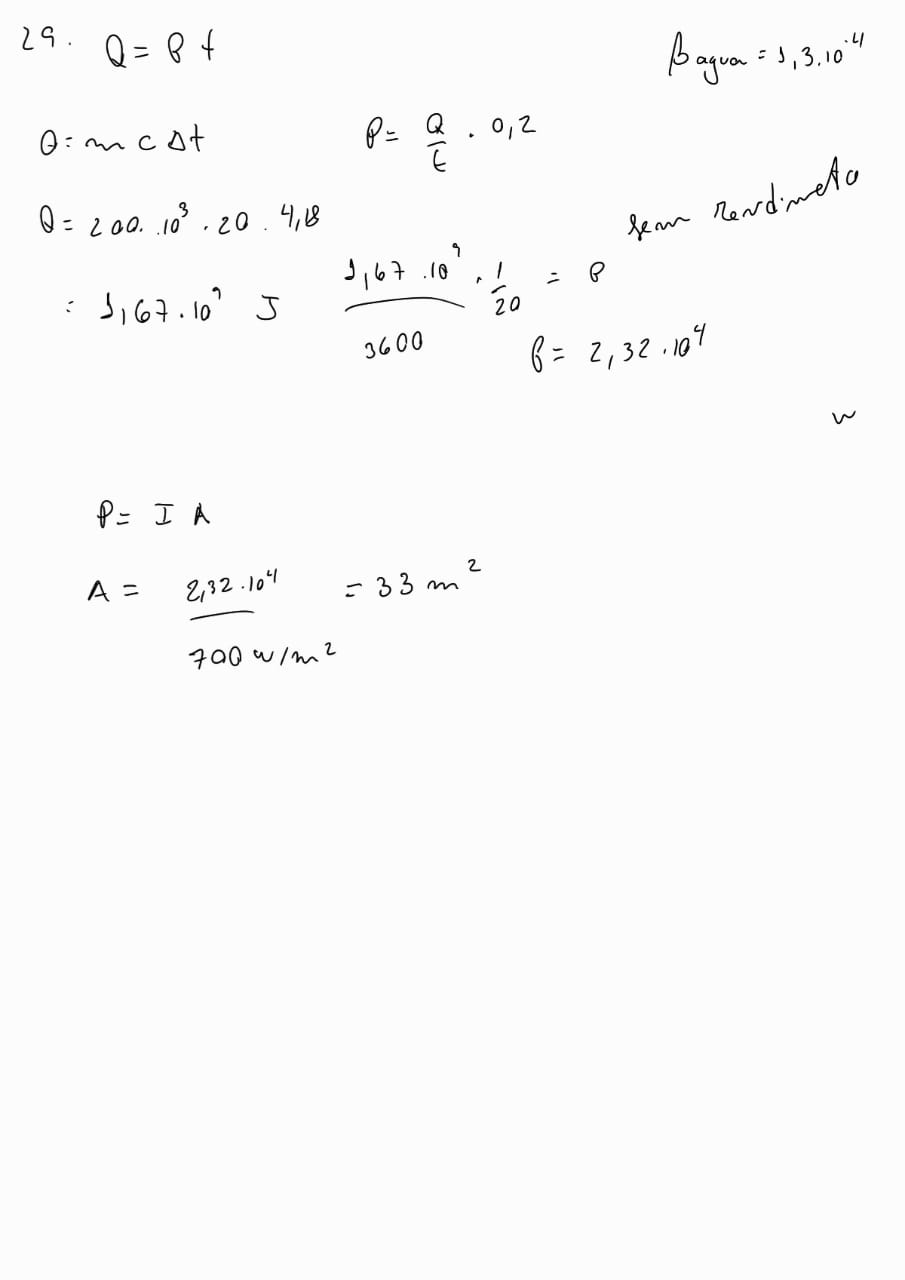 29. Q = P t
β agua = 1,3.10^-4
Q = m c Δt
P = Q/t . 0,2
Q = 200. .10^3 . 20 . 4,18
sem rendimeto
= 1,67.10^7 J
1,67 .10^7 / 3600 . 1/20 = P
P = 2,32 .10^4
w
P = I A
A = 2,32.10^4 / 700 w/m^2 = 33 m^2